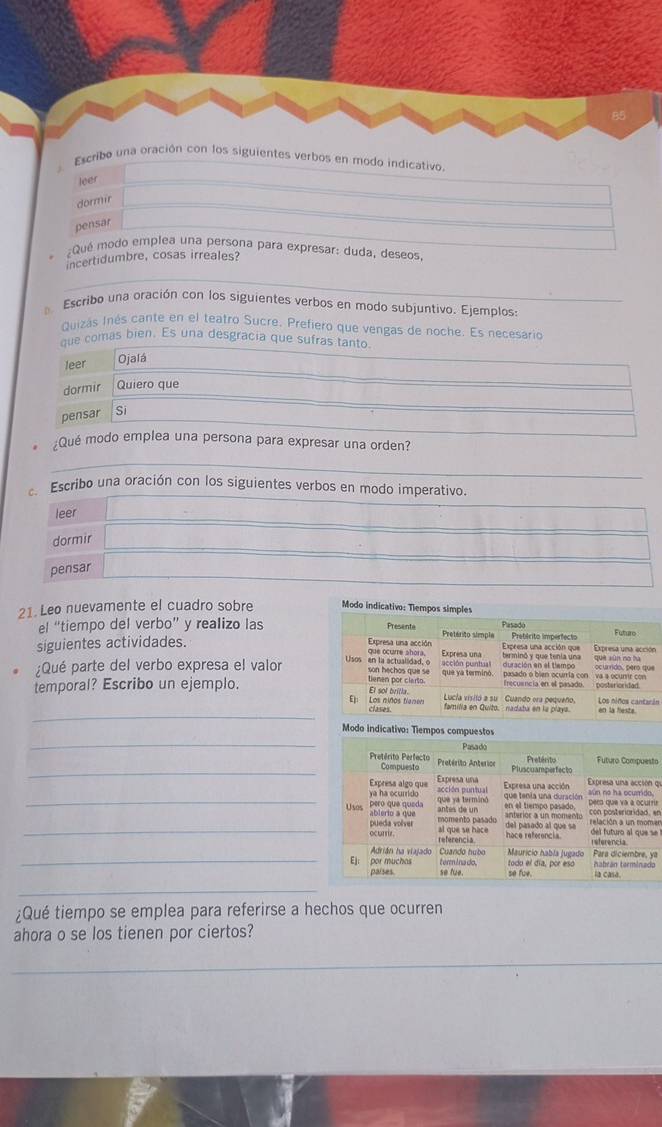 85
Escribo una oración con los siguientes verbos en modo indicativo.
leer
dormir
pensar
¿Qué modo emplea una persona para expresar: duda, deseos,
incertidumbre, cosas irreales?
b. Escribo una oración con los siguientes verbos en modo subjuntivo. Ejemplos:
Quizás Inés cante en el teatro Sucre. Prefiero que vengas de noche. Es necesario
que comas bien. Es una desgracia que sufras tanto.
leer Ojalá
dormir Quiero que
pensar Si
• ¿Qué modo emplea una persona para expresar una orden?
c. Escribo una oración con los siguientes verbos en modo imperativo.
leer
dormir
pensar
21. Leo nuevamente el cuadro sobre
el “tiempo del verbo” y realizo las
siguientes actividades.
• ¿Qué parte del verbo expresa el valor
temporal? Escribo un ejemplo.
Modo indicativo: Tiempos simples
Presente Pasado Futuro
Pretérito simple Pretérito imperfecto
Usos
Expresa una acción
que ocurre ahora,
en la actualidad, o
son hechos que se
tienen por cierto.
Expresa una
acción puntual
que ya terminó.
Expresa una acción que
terminó y que tenía una
duración en el tiempo
pasado o bien ocurría con
frecuencia en el pasado.
Expresa una acción
que aún no ha
ocurrido, pero que
va a ocurrir con
posterioridad.
Ej:
El sol brilla.
Los niños tienen
clases.
Lucía visitó a su
familia en Quito.
Cuando era pequeño,
nadaba en la playa.
Los niños cantarán
en la fiesta.
Modo indicativo: Tiempos compuestos
Pasado
Pretérito Perfecto
Compuesto
Pretérito Anterior
Pretérito
Pluscuamperfecto
Futuro Compuesto
Usos
Expresa algo que
ya ha ocurrido
pero que queda
abierto a que
pueda volver
ocurrir.
Expresa una
acción puntual
que ya terminó
antes de un
momento pasado
al que se hace
referencia.
Expresa una acción
que tenía una duración
en el tiempo pasado,
anterior a un momento
del pasado al que se
hace referencia.
Expresa una acción
aún no ha ocurrido,
pero que va a ocurrir
con posterioridad, en
relación a un
del futuro al que se
referencia.
Ej:
Adrián ha viajado
por muchos
países.
Cuando hubo
terminado,
se fue.
Mauricio había jugado
todo el día, por eso
se fue.
Para diciembre, ya
habrán terminado
la casa.
¿Qué tiempo se emplea para referirse a hechos que ocurren
ahora o se los tienen por ciertos?